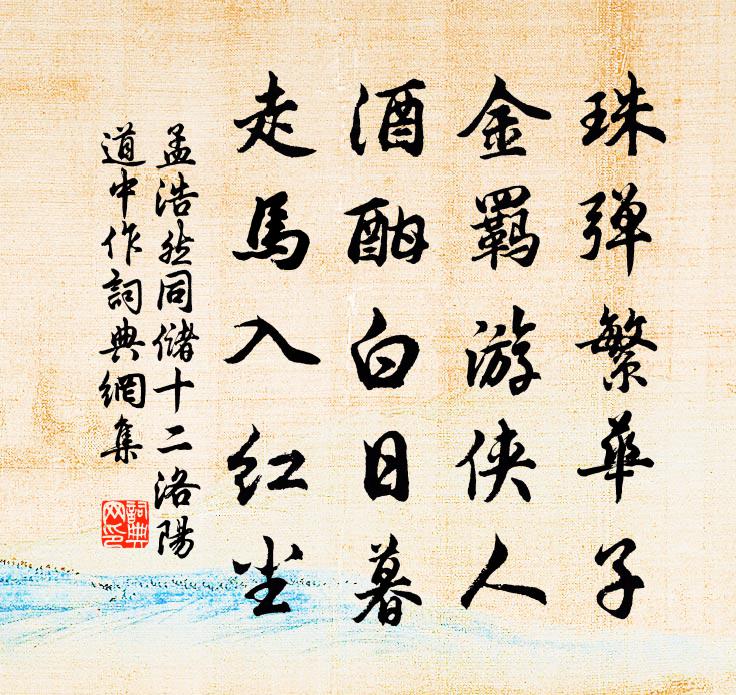 珠弹繁華子
金羈游侠人
酒酣白日暮
走馬入红尘
孟浩然同儲十二洛陽
道中作詞典網集
詞典網印